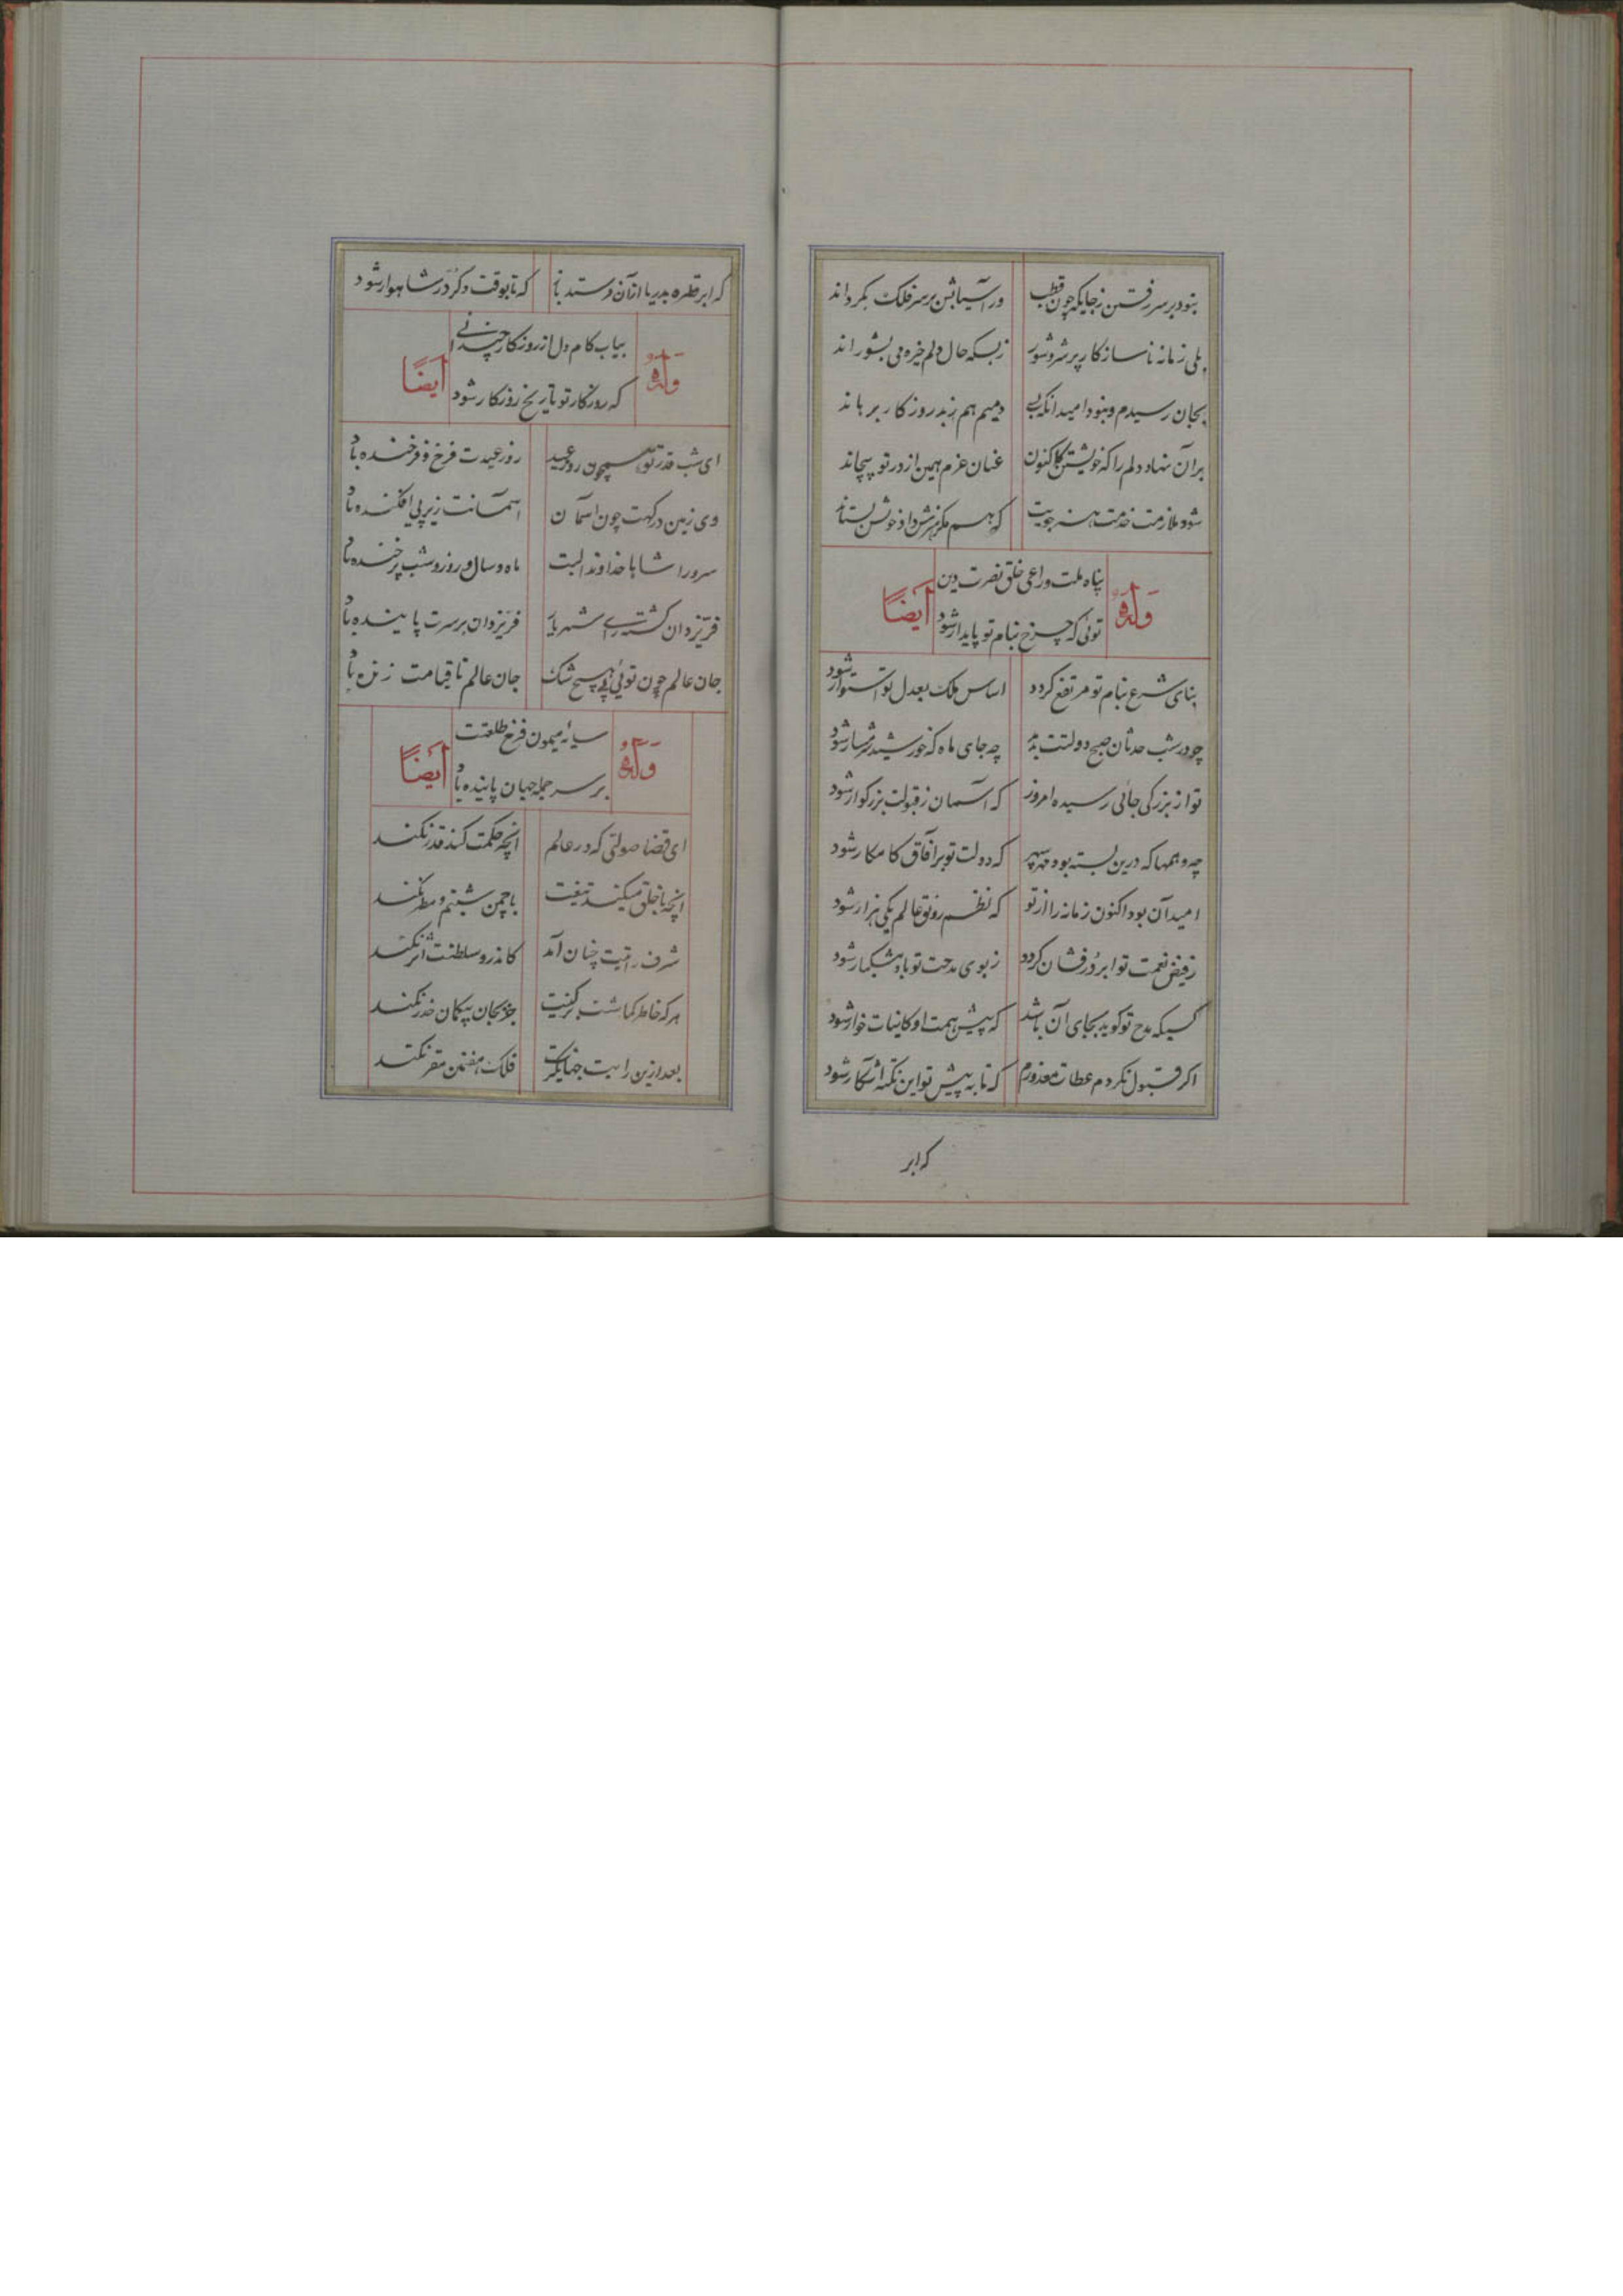 بنود بر سر رفتن ز جایگه چون قطب ور آسیا بش بر سر فلک بگرداند
بلی زمانه ناساز کار پر شر و شور ز بسکه حال دلم خیره می بشوراند
بجان رسیدم و بنود امید انکه بسی دمیم هم ز بد روزکار برهاند
بر آن نهاد دلم را که خویشتن اکنون عنان عزم همین از در تو پیچاند
شود ملازمت خدمت هنر جویت که هم مکرمتش داد خویش بستاند
پناه ملت و راعی خلق نصرت دین
وله ایضاً
توئی که چرخ بنام تو پایدار شود
بنای شرع بنام تو مرتفع کردد اساس ملک بعدل تو استوار شود
چو در شب حدثان صبح دولتت بدمد چه جای ماه که خورشید شرمسار شود
تو از بزرکی جائی رسیده امروز که آسمان ز قبولت بزرکوار شود
چه وهمها که درین بسته بود مه سپهر که دولت تو بر آفاق کامکار شود
امید آن بود اکنون زمانه را از تو که نظم رونق عالم یکی هزار شود
ز فیض نعمت تو ابر درفشان کردد ز بوی مدحت تو باد مشکبار شود
کسیکه مدح تو کوید بجای آن باشد که پیش همت او کاینات خوار شود
اکر قبول نکردم عطات معذورم که تا به پیش تو این نکته آشکار شود
که ابر
که ابر قطره بدریا از آن فرستد باز که تا بوقت دکر در شاهوار شود
بیاب کام دل از روزکار چندانی
وله ایضاً
که روزکار تو تاریخ روزکار شود
ای شب قدر تو همچون روز عید روز عیدت فرخ و فرخنده باد
وی زمین درکهت چون اسمان آسمانت زیر پی افکنده باد
سرورا شاها خداوندا لبت ماه و سال و روز و شب پر خنده باد
فر یزدان کشتی ای شهریار فر یزدان بر سرت پاینده باد
جان عالم چون توئی بی هیچ شک جان عالم تا قیامت زنده باد
سایه میمون فرخ طلعتت
وله ایضاً
بر سر جمله جهان پاینده باد
ای قضا صولتی که در عالم انچه حکمت کند قدر نکند
انچه با خلق میکند تیغت با چمن شبنم و مطر نکند
شرف رایت چنان آمد کاندرو سلطنت اثر نکند
هرکه خاطر کماشت بر کینت جز بجان پیکان حذر نکند
بعد ازین رایت جهانکیرت فلک هفتمین مقر نکند